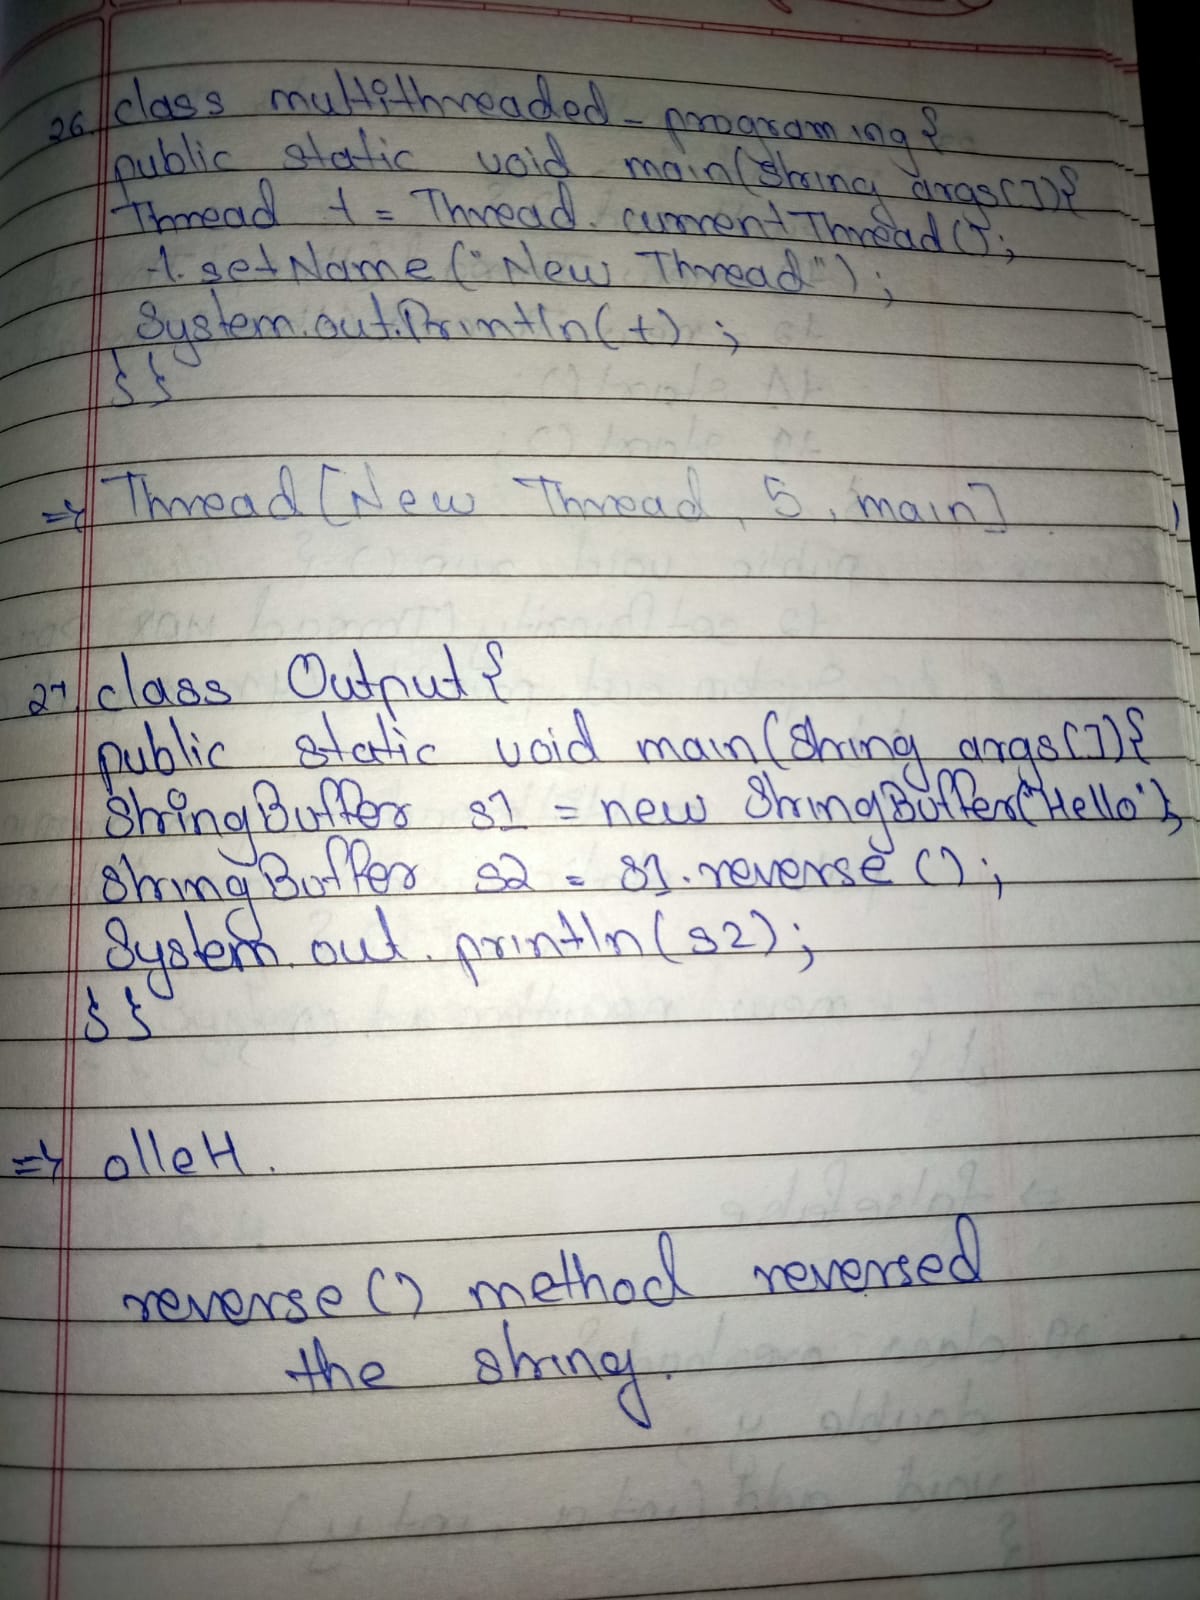 26. class multithreaded_programing{
public static void main(String args[]){
Thread t = Thread.currentThread();
t.setName("New Thread");
System.out.Println(t);
}}
=> Thread[New Thread, 5, main]
27. class Output{
public static void main(String args[]){
StringBuffer s1 = new StringBuffer("Hello");
StringBuffer s2 = s1.reverse();
System.out.println(s2);
}}
=> olleH.
reverse() method reversed
the string.